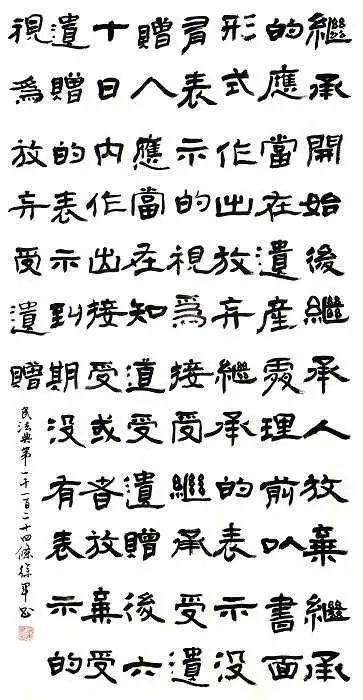 繼承開始後繼承人放棄繼承
的應當在遺產處理前以書面
形式作出放弃繼承的表示没
有表示的視爲接受繼承受遺
贈人應當在知道受遺贈後六
十日内作出接受或者放棄受
遺贈的表示到期没有表示的
視爲放弃受遺贈
民法典第一千一百二十四條